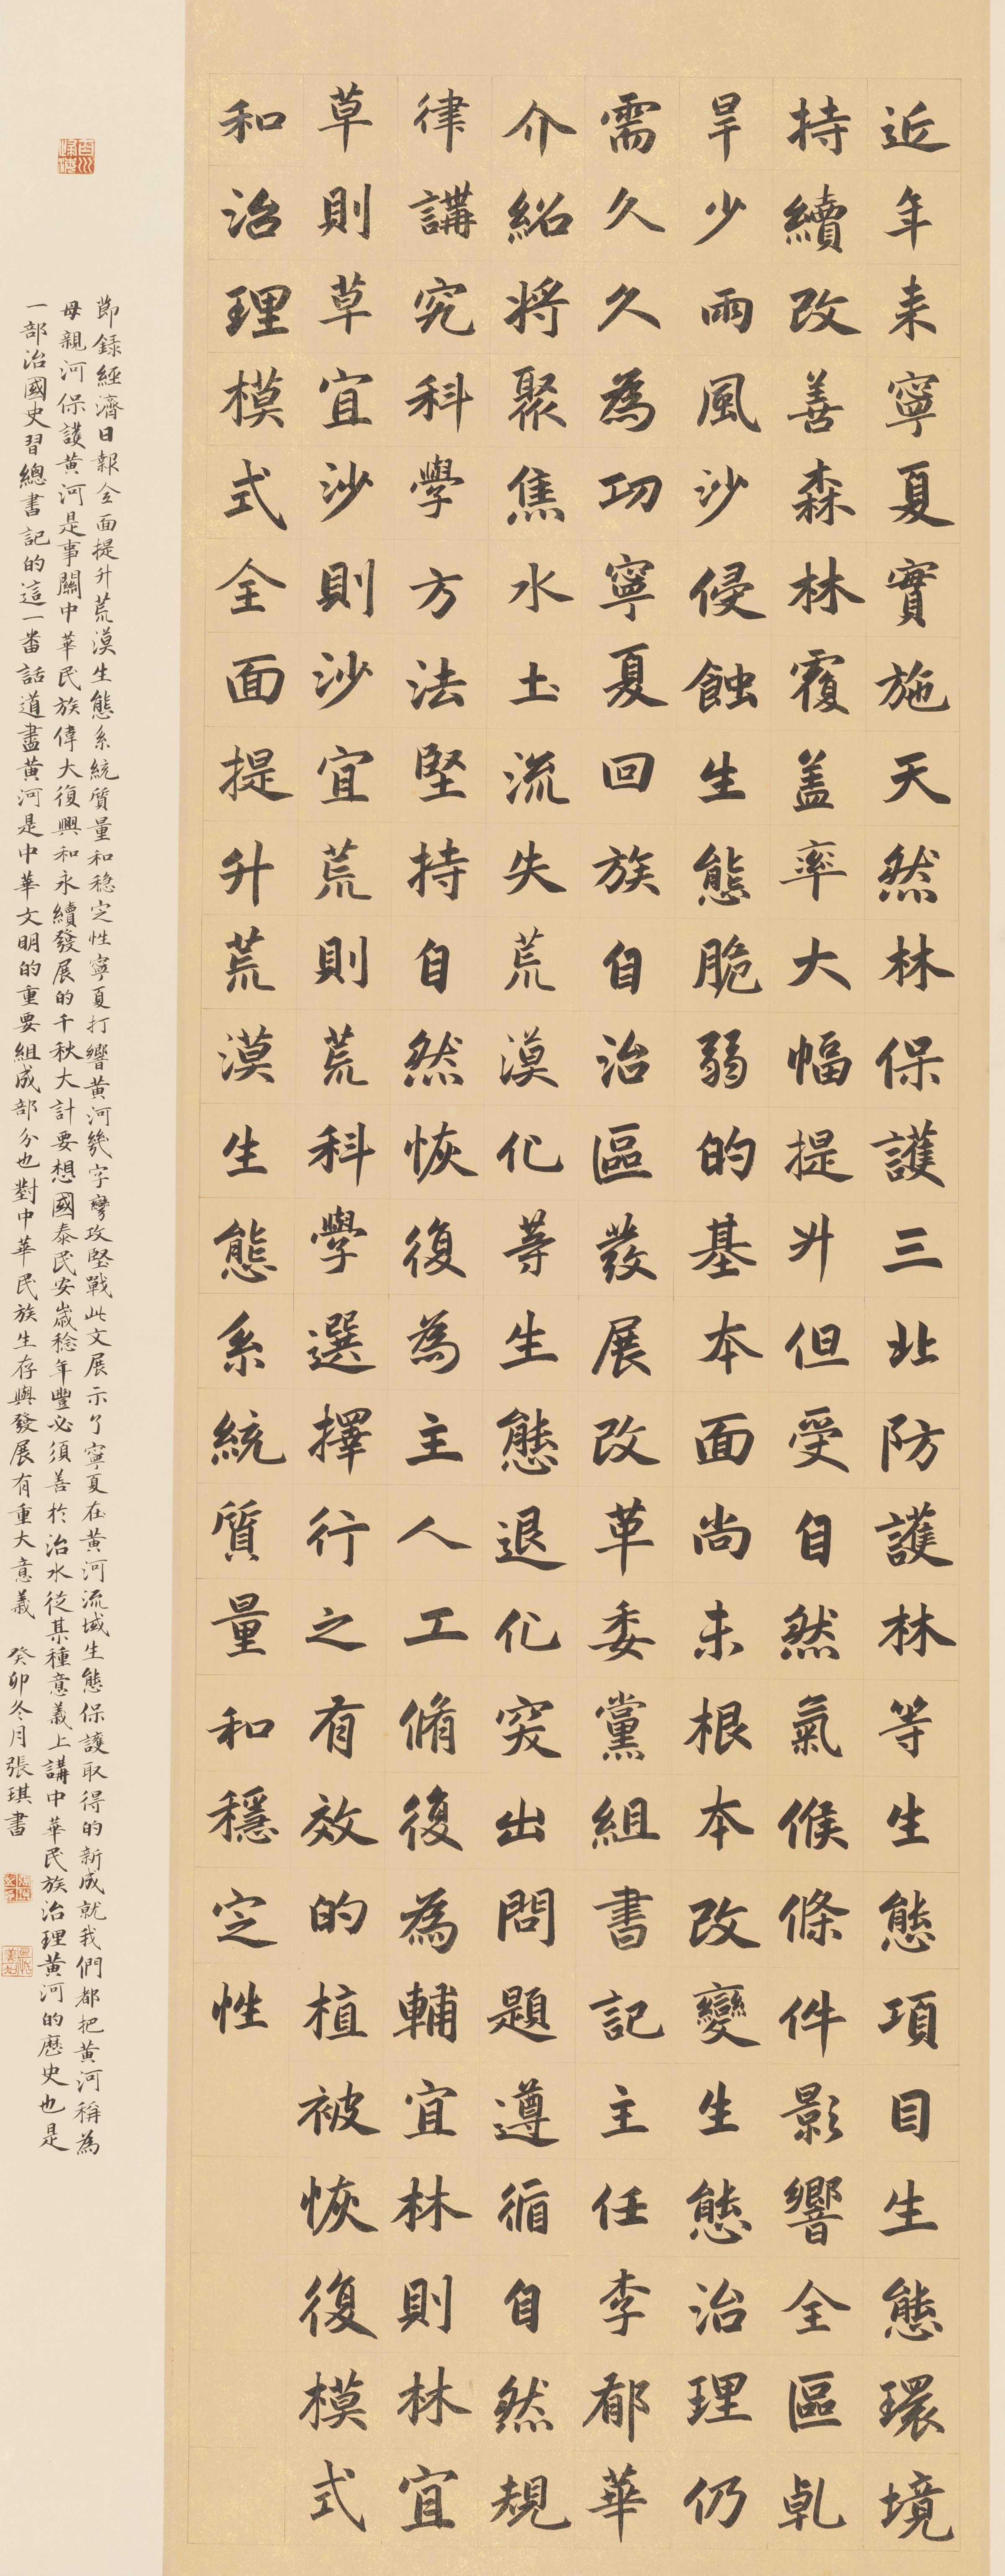 近年来寧夏實施天然林保護三北防護林等生態項目生態環境
持續改善森林覆盖率大幅提升但受自然氣候條件影響全區乹
旱少雨風沙侵蝕生態脆弱的基本面尚未根本改變生態治理仍
需久久為功寧夏回族自治區發展改革委黨組書記主任李郁華
介紹將聚焦水土流失荒漠化等生態退化突出問題遵循自然規
律講究科學方法堅持自然恢復為主人工脩復為輔宜林則林宜
草則草宜沙則沙宜荒則荒科學選擇行之有效的植被恢復模式
和治理模式全面提升荒漠生態系統質量和穩定性
節録經濟日報全面提升荒漠生態系統質量和穩定性寧夏打響黄河幾字彎攻堅戰此文展示了寧夏在黄河流域生態保護取得的新成就我們都把黄河稱為
母親河保護黄河是事關中華民族偉大復興和永續發展的千秋大計要想國泰民安歲稔年豐必須善於治水從某種意義上講中華民族治理黄河的歷史也是
一部治國史習總書記的這一番話道盡黄河是中華文明的重要組成部分也對中華民族生存與發展有重大意義 癸卯冬月張琪書